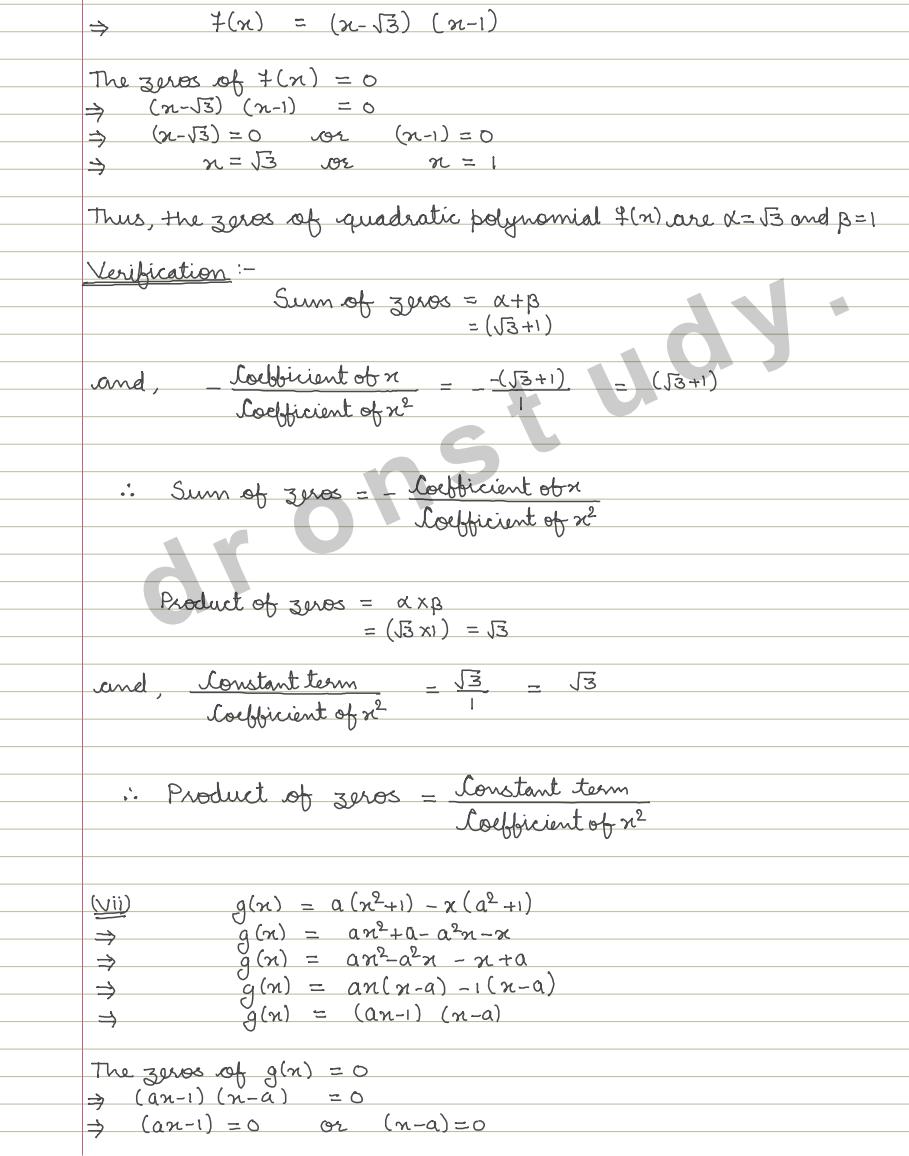 ⇒ f(x) = (x-√3) (x-1)
The zeros of f(x) = 0
⇒ (x-√3) (x-1) = 0
⇒ (x-√3) = 0 or (x-1) = 0
⇒ x = √3 or x = 1
Thus, the zeros of quadratic polynomial f(x) are α=√3 and β=1
Verification :-
Sum of zeros = α+β
= (√3+1)
and, - Coefficient of x / Coefficient of x² = - -(√3+1) / 1 = (√3+1)
∴ Sum of zeros = - Coefficient of x / Coefficient of x²
Product of zeros = α×β
= (√3×1) = √3
and, Constant term / Coefficient of x² = √3 / 1 = √3
∴ Product of zeros = Constant term / Coefficient of x²
(vii) g(x) = a(x²+1) - x(a²+1)
⇒ g(x) = ax²+a-a²x-x
⇒ g(x) = ax²-a²x - x+a
⇒ g(x) = ax(x-a) -1(x-a)
⇒ g(x) = (ax-1) (x-a)
The zeros of g(x) = 0
⇒ (ax-1) (x-a) = 0
⇒ (ax-1) = 0 or (x-a)=0
dronstudy.